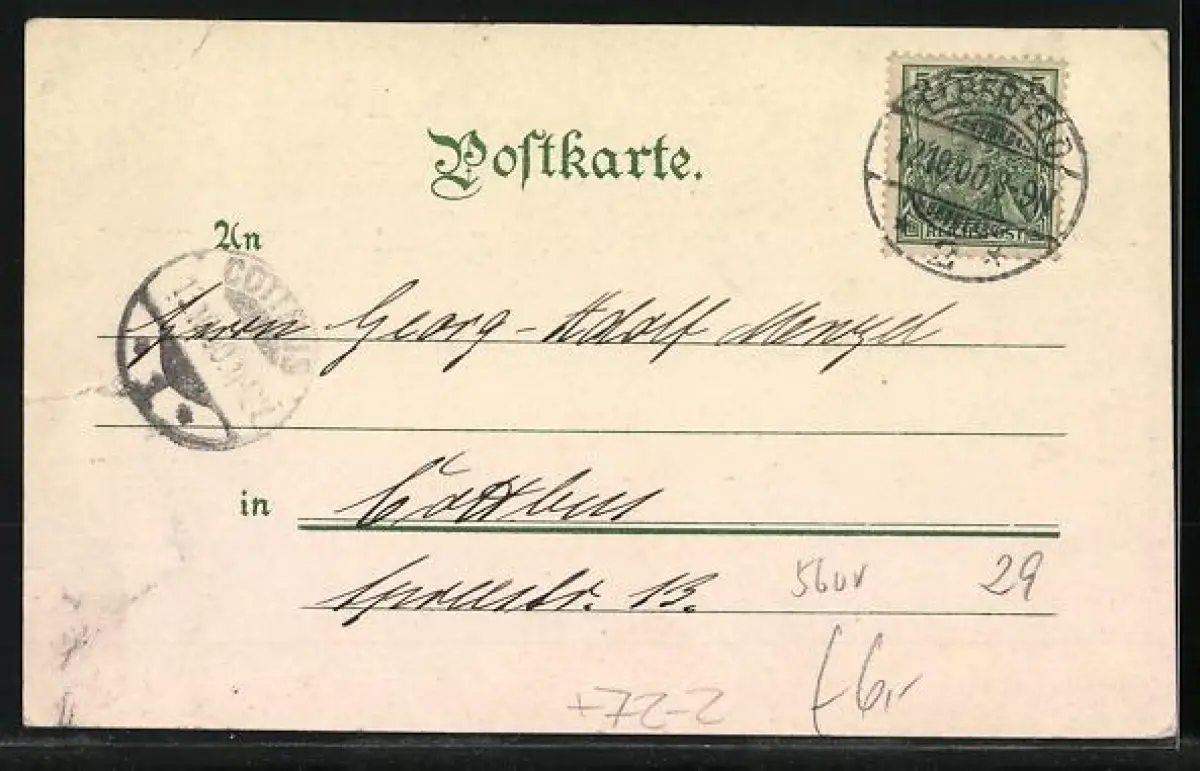 5 5
ELBERFELD
12.10.00.8-9N
2 *
REICHSPOST
Postkarte.
An
COTTBUS
Herrn Georg-Adolf Menzel
in Cottbus
Spreestr. 13.
29
+72-2
6,-